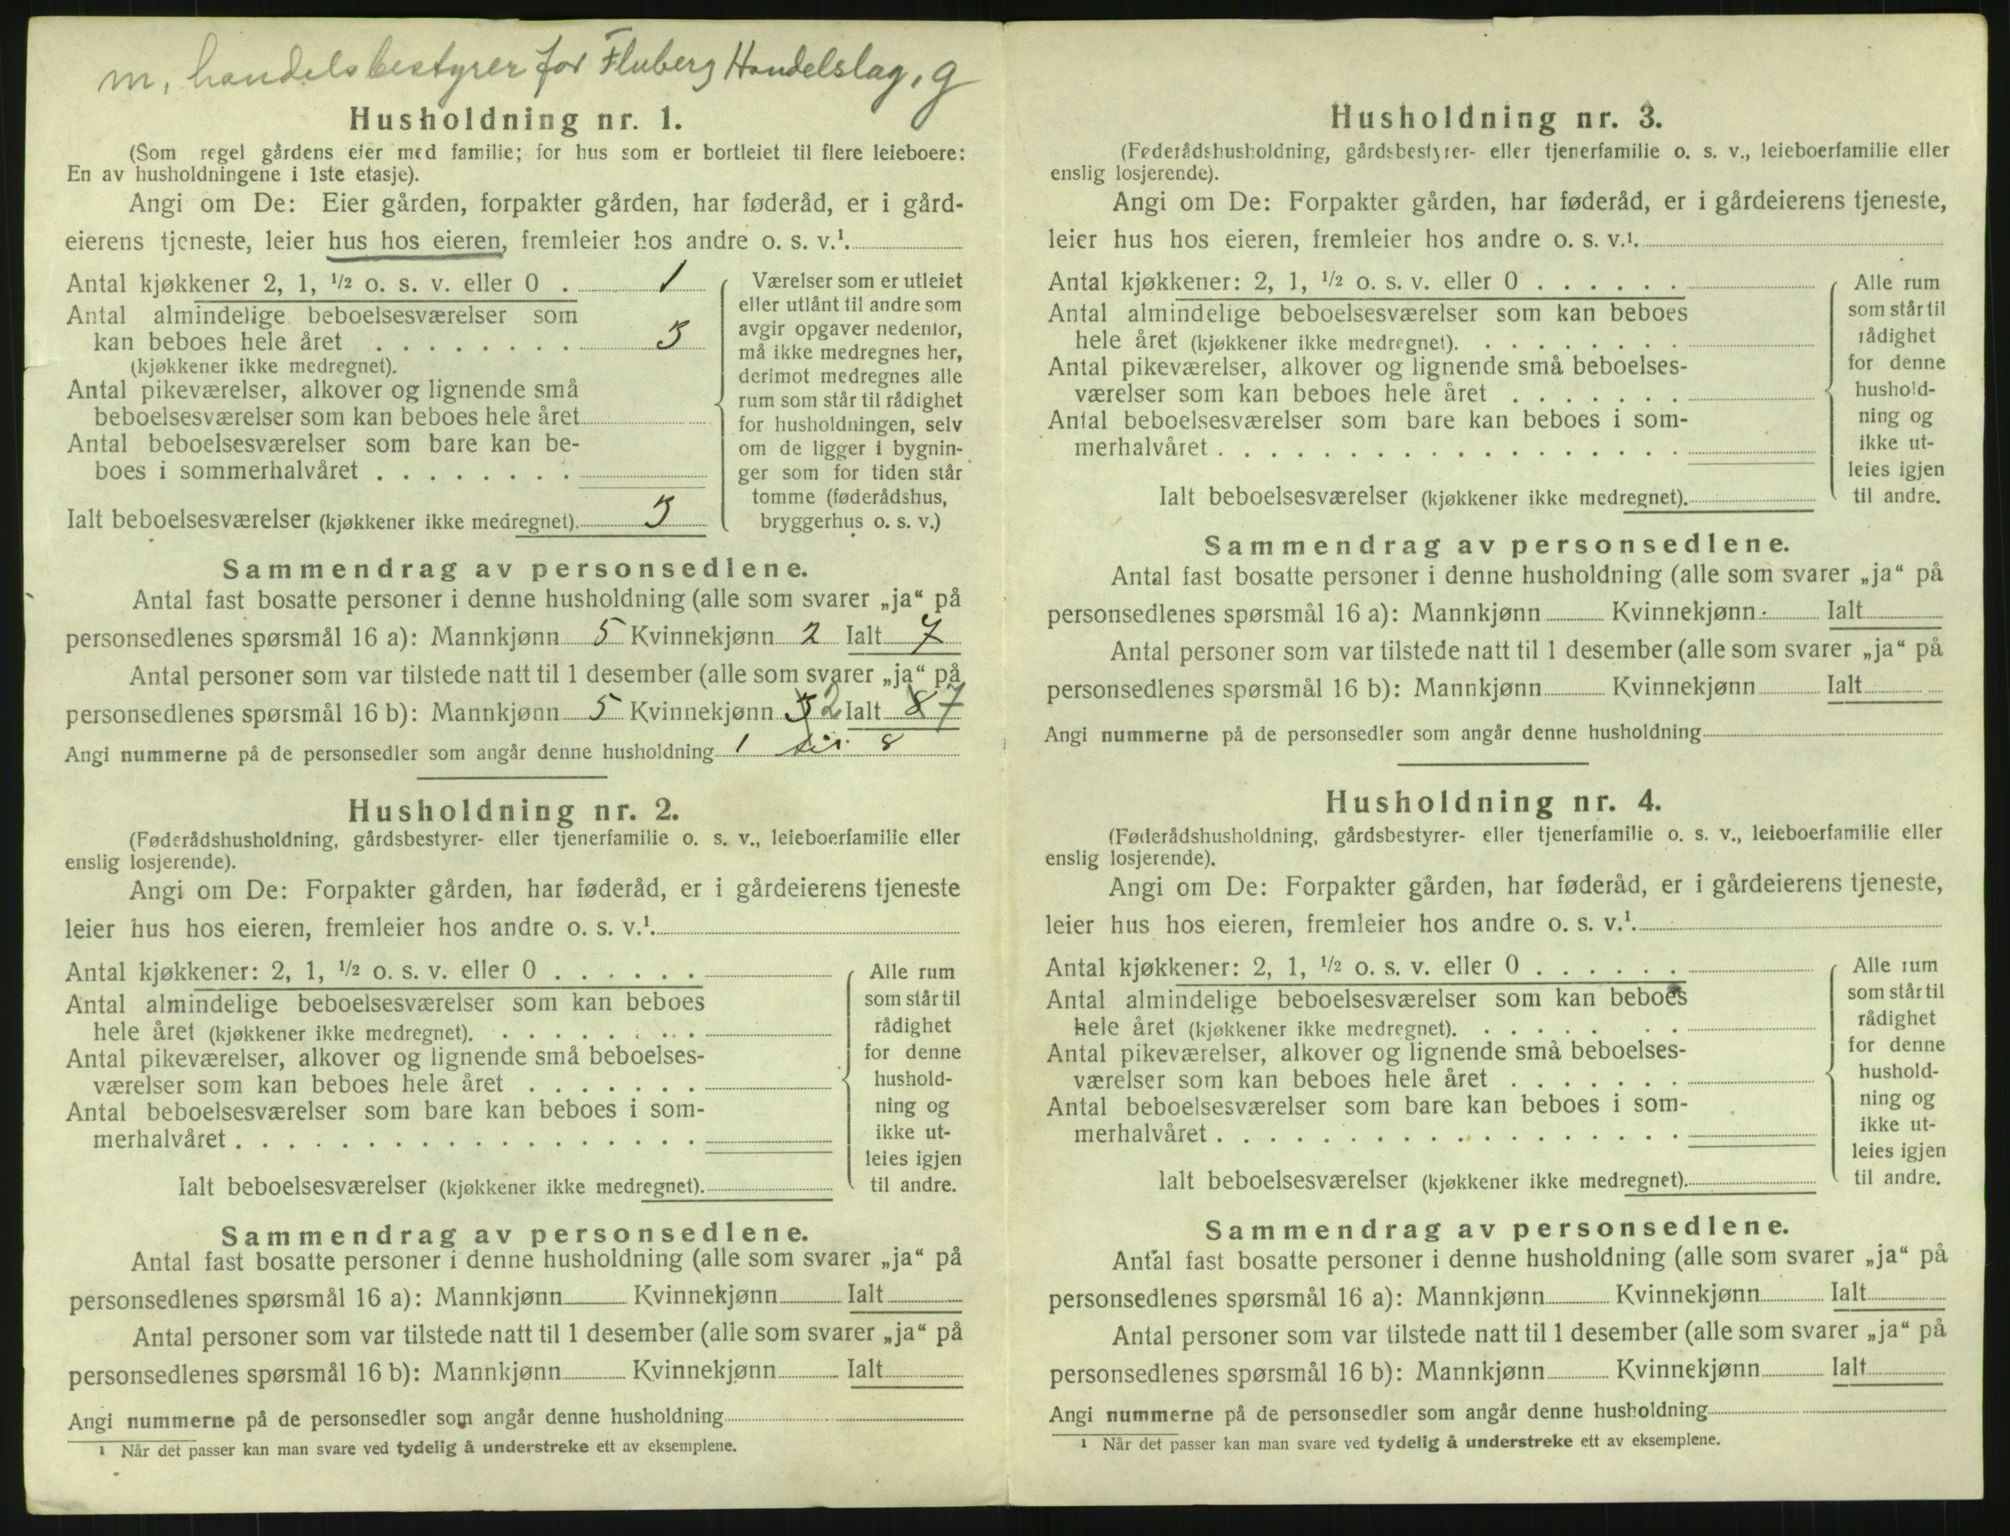 m, handelsbestyrer for Fluberg Handelslag, g
Husholdning nr. 1.
(Som regel gårdens eier med familie; for hus som er bortleiet til flere leieboere:
En av husholdningene i 1ste etasje).
Angi om De: Eier gården, forpakter gården, har føderåd, er i gård-
eierens tjeneste, leier hus hos eieren, fremleier hos andre o. s. v.¹.
Antal kjøkkener 2, 1, ½ o. s. v. eller 0 . 1
Antal almindelige beboelsesværelser som
kan beboes hele året . . . . . . . . 3
(kjøkkener ikke medregnet).
Antal pikeværelser, alkover og lignende små
beboelsesværelser som kan beboes hele året
Antal beboelsesværelser som bare kan be-
boes i sommerhalvåret . . . . . . . .
Ialt beboelsesværelser (kjøkkener ikke medregnet). 3
Værelser som er utleiet
eller utlånt til andre som
avgir opgaver nedenfor,
må ikke medregnes her,
derimot medregnes alle
rum som står til rådighet
for husholdningen, selv
om de ligger i bygnin-
ger som for tiden står
tomme (føderådshus,
bryggerhus o. s. v.)
Sammendrag av personsedlene.
Antal fast bosatte personer i denne husholdning (alle som svarer „ja“ på
personsedlenes spørsmål 16 a): Mannkjønn 5 Kvinnekjønn 2 Ialt 7
Antal personer som var tilstede natt til 1 desember (alle som svarer „ja“ på
personsedlenes spørsmål 16 b): Mannkjønn 5 Kvinnekjønn 3 2 Ialt 8 7
Angi nummerne på de personsedler som angår denne husholdning 1 til 8
Husholdning nr. 2.
(Føderådshusholdning, gårdsbestyrer- eller tjenerfamilie o. s. v., leieboerfamilie eller
enslig losjerende).
Angi om De: Forpakter gården, har føderåd, er i gårdeierens tjeneste
leier hus hos eieren, fremleier hos andre o. s. v.¹.
Antal kjøkkener: 2, 1, ½ o. s. v. eller 0 . . . . . .
Antal almindelige beboelsesværelser som kan beboes
hele året (kjøkkener ikke medregnet). . . . . . . . .
Antal pikeværelser, alkover og lignende små beboelses-
værelser som kan beboes hele året . . . . . . .
Antal beboelsesværelser som bare kan beboes i som-
merhalvåret . . . . . . . . . . . . . . . . . .
Ialt beboelsesværelser (kjøkkener ikke medregnet).
Alle rum
som står til
rådighet
for denne
hushold-
ning og
ikke ut-
leies igjen
til andre.
Sammendrag av personsedlene.
Antal fast bosatte personer i denne husholdning (alle som svarer „ja“ på
personsedlenes spørsmål 16 a): Mannkjønn Kvinnekjønn Ialt
Antal personer som var tilstede natt til 1 desember (alle som svarer „ja“ på
personsedlenes spørsmål 16 b): Mannkjønn Kvinnekjønn Ialt
Angi nummerne på de personsedler som angår denne husholdning
¹ Når det passer kan man svare ved tydelig å understreke ett av eksemplene.
Husholdning nr. 3.
(Føderådshusholdning, gårdsbestyrer- eller tjenerfamilie o. s. v., leieboerfamilie eller
enslig losjerende).
Angi om De: Forpakter gården, har føderåd, er i gårdeierens tjeneste,
leier hus hos eieren, fremleier hos andre o. s. v.¹.
Antal kjøkkener: 2, 1, ½ o. s. v. eller 0 . . . . . .
Antal almindelige beboelsesværelser som kan beboes
hele året (kjøkkener ikke medregnet). . . . . . . . .
Antal pikeværelser, alkover og lignende små beboelses-
værelser som kan beboes hele året . . . . . . .
Antal beboelsesværelser som bare kan beboes i som-
merhalvåret . . . . . . . . . . . . . . . . . .
Ialt beboelsesværelser (kjøkkener ikke medregnet).
Alle rum
som står til
rådighet
for denne
hushold-
ning og
ikke ut-
leies igjen
til andre.
Sammendrag av personsedlene.
Antal fast bosatte personer i denne husholdning (alle som svarer „ja“ på
personsedlenes spørsmål 16 a): Mannkjønn Kvinnekjønn Ialt
Antal personer som var tilstede natt til 1 desember (alle som svarer „ja“ på
personsedlenes spørsmål 16 b): Mannkjønn Kvinnekjønn Ialt
Angi nummerne på de personsedler som angår denne husholdning
Husholdning nr. 4.
(Føderådshusholdning, gårdsbestyrer- eller tjenerfamilie o. s. v., leieboerfamilie eller
enslig losjerende).
Angi om De: Forpakter gården, har føderåd, er i gårdeierens tjeneste,
leier hus hos eieren, fremleier hos andre o. s. v.¹.
Antal kjøkkener: 2, 1, ½ o. s. v. eller 0 . . . . . .
Antal almindelige beboelsesværelser som kan beboes
hele året (kjøkkener ikke medregnet). . . . . . . . .
Antal pikeværelser, alkover og lignende små beboelses-
værelser som kan beboes hele året . . . . . . .
Antal beboelsesværelser som bare kan beboes i som-
merhalvåret . . . . . . . . . . . . . . . . . .
Ialt beboelsesværelser (kjøkkener ikke medregnet).
Alle rum
som står til
rådighet
for denne
hushold-
ning og
ikke ut-
leies igjen
til andre.
Sammendrag av personsedlene.
Antal fast bosatte personer i denne husholdning (alle som svarer „ja“ på
personsedlenes spørsmål 16 a): Mannkjønn Kvinnekjønn Ialt
Antal personer som var tilstede natt til 1 desember (alle som svarer „ja“ på
personsedlenes spørsmål 16 b): Mannkjønn Kvinnekjønn Ialt
Angi nummerne på de personsedler som angår denne husholdning
¹ Når det passer kan man svare ved tydelig å understreke ett av eksemplene.